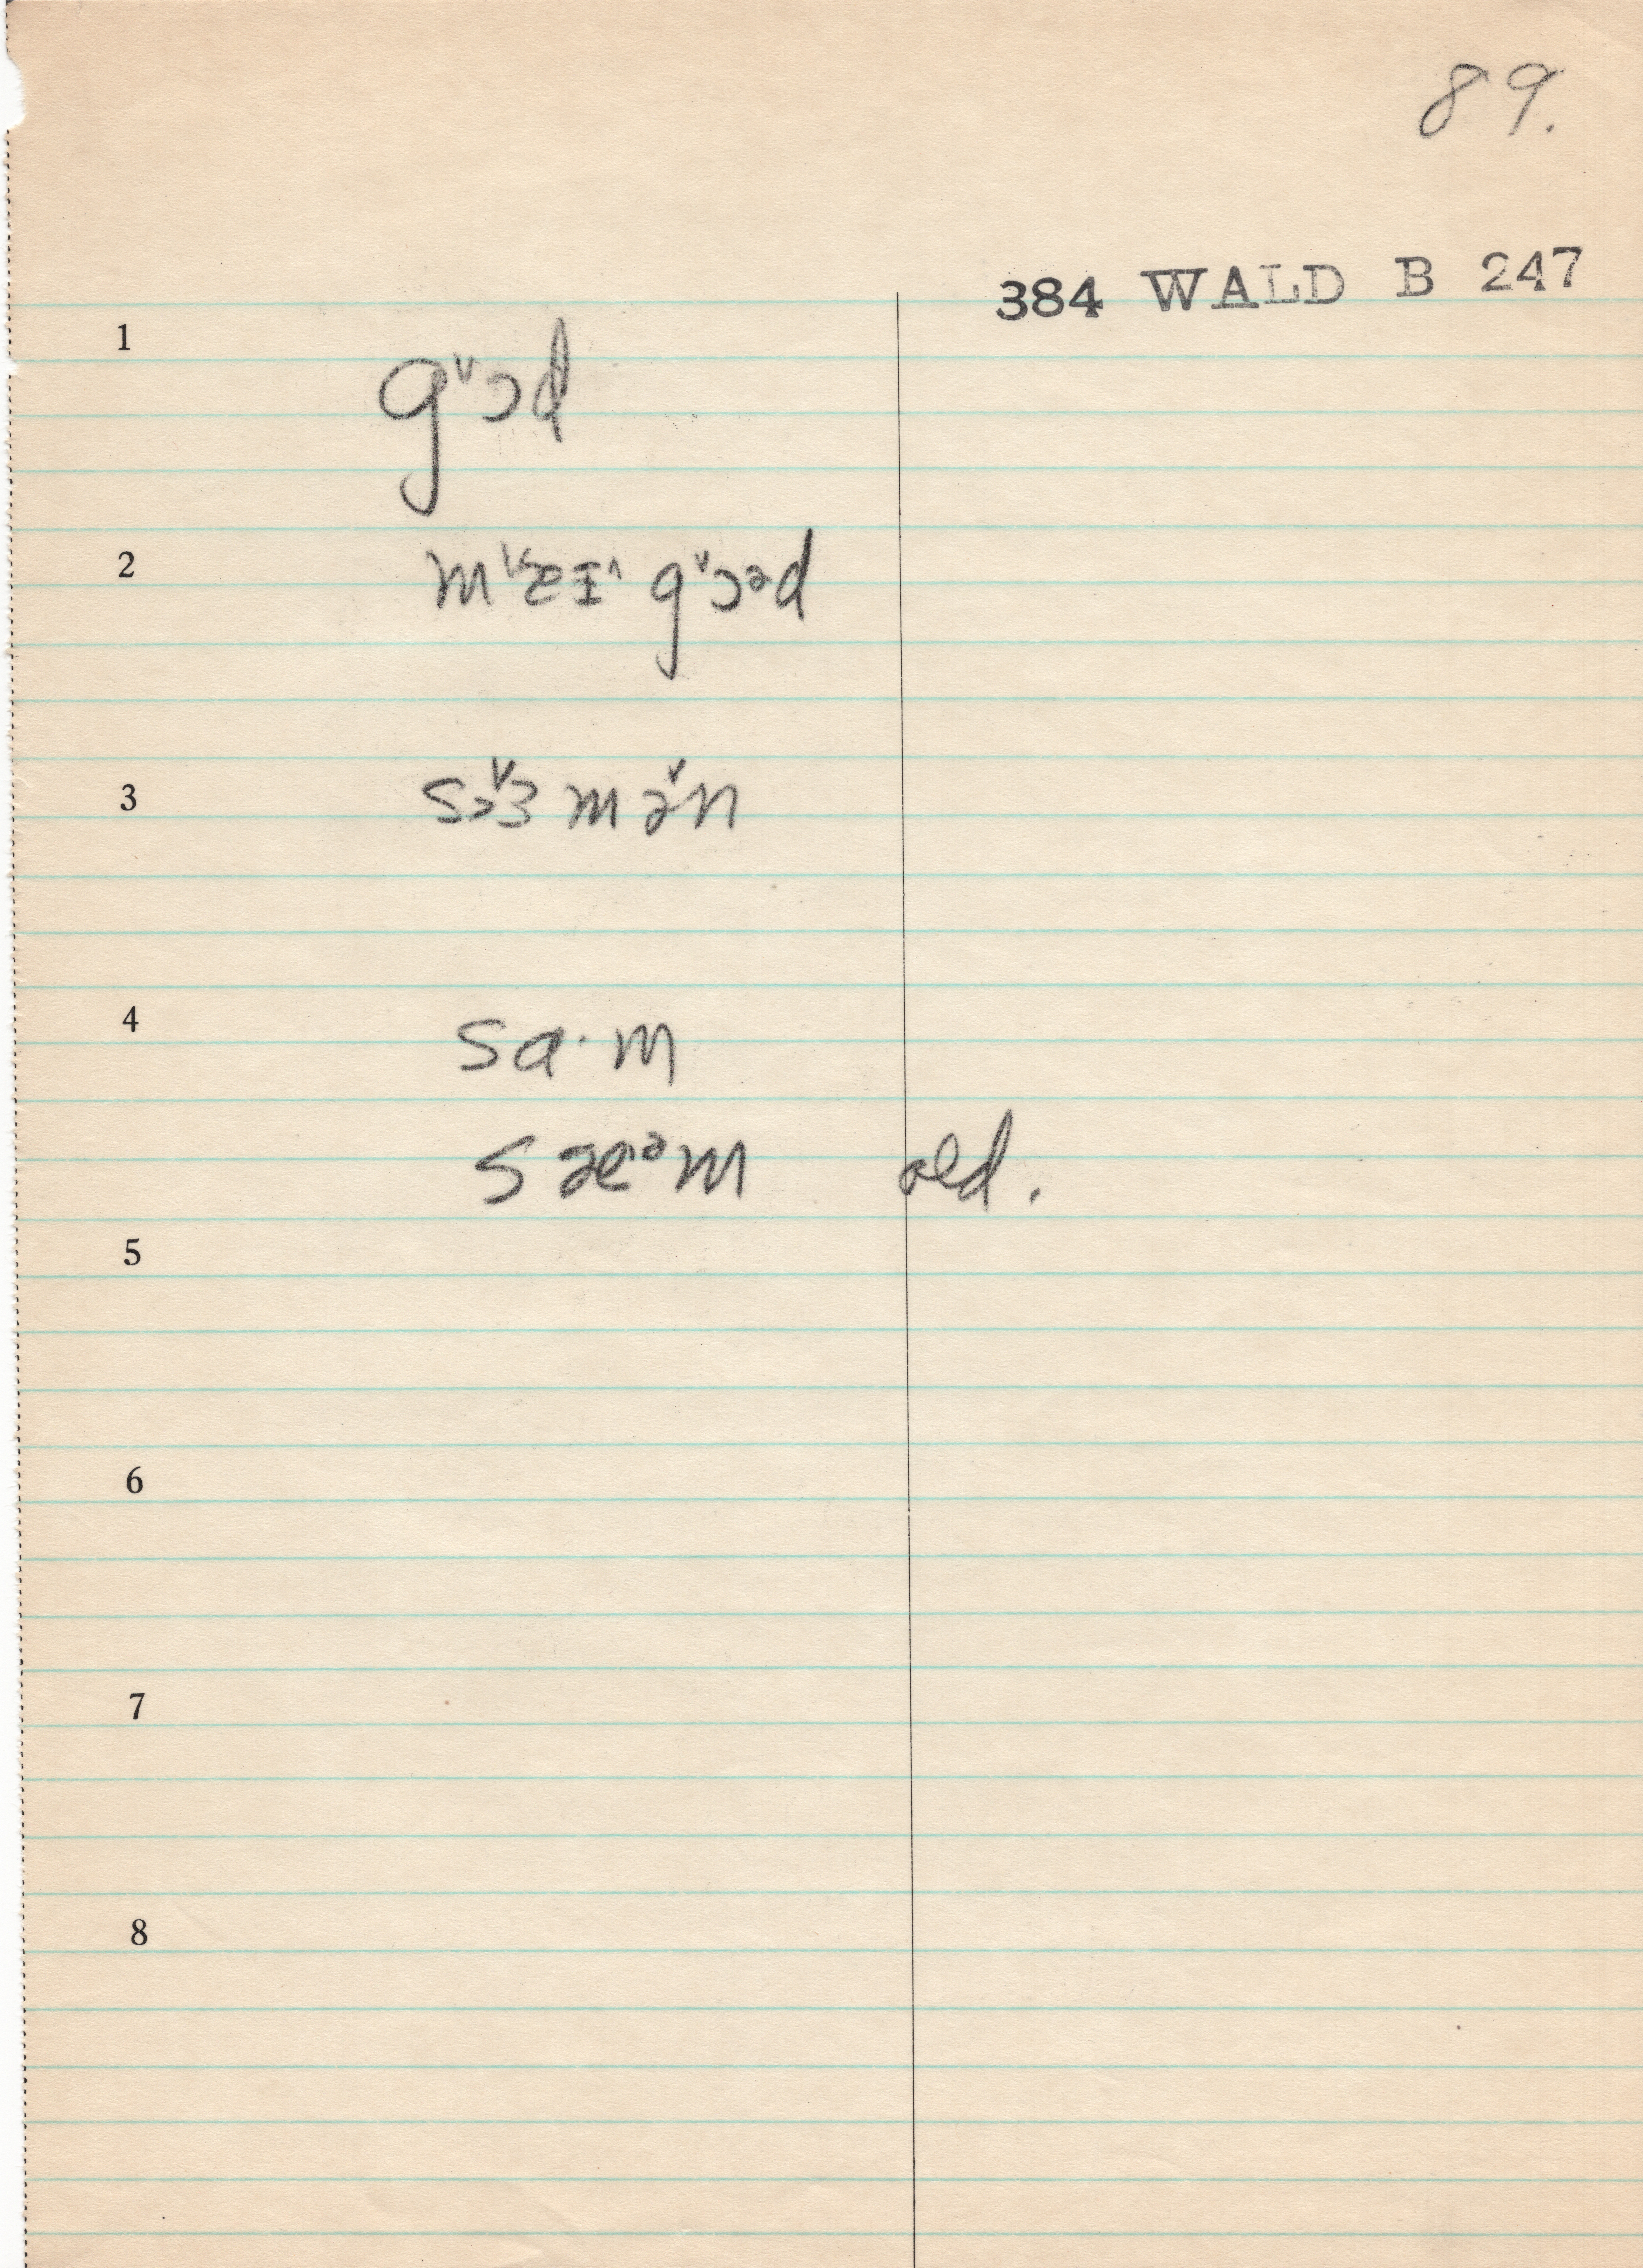 89.
384 WALD B 247
1 g˅ɔd
2 m˅æɪ˄ g˅ɔəd
3 sɜ˅ mə˅n
4 sɑ·m
sæ·ᵊm old.
5
6
7
8